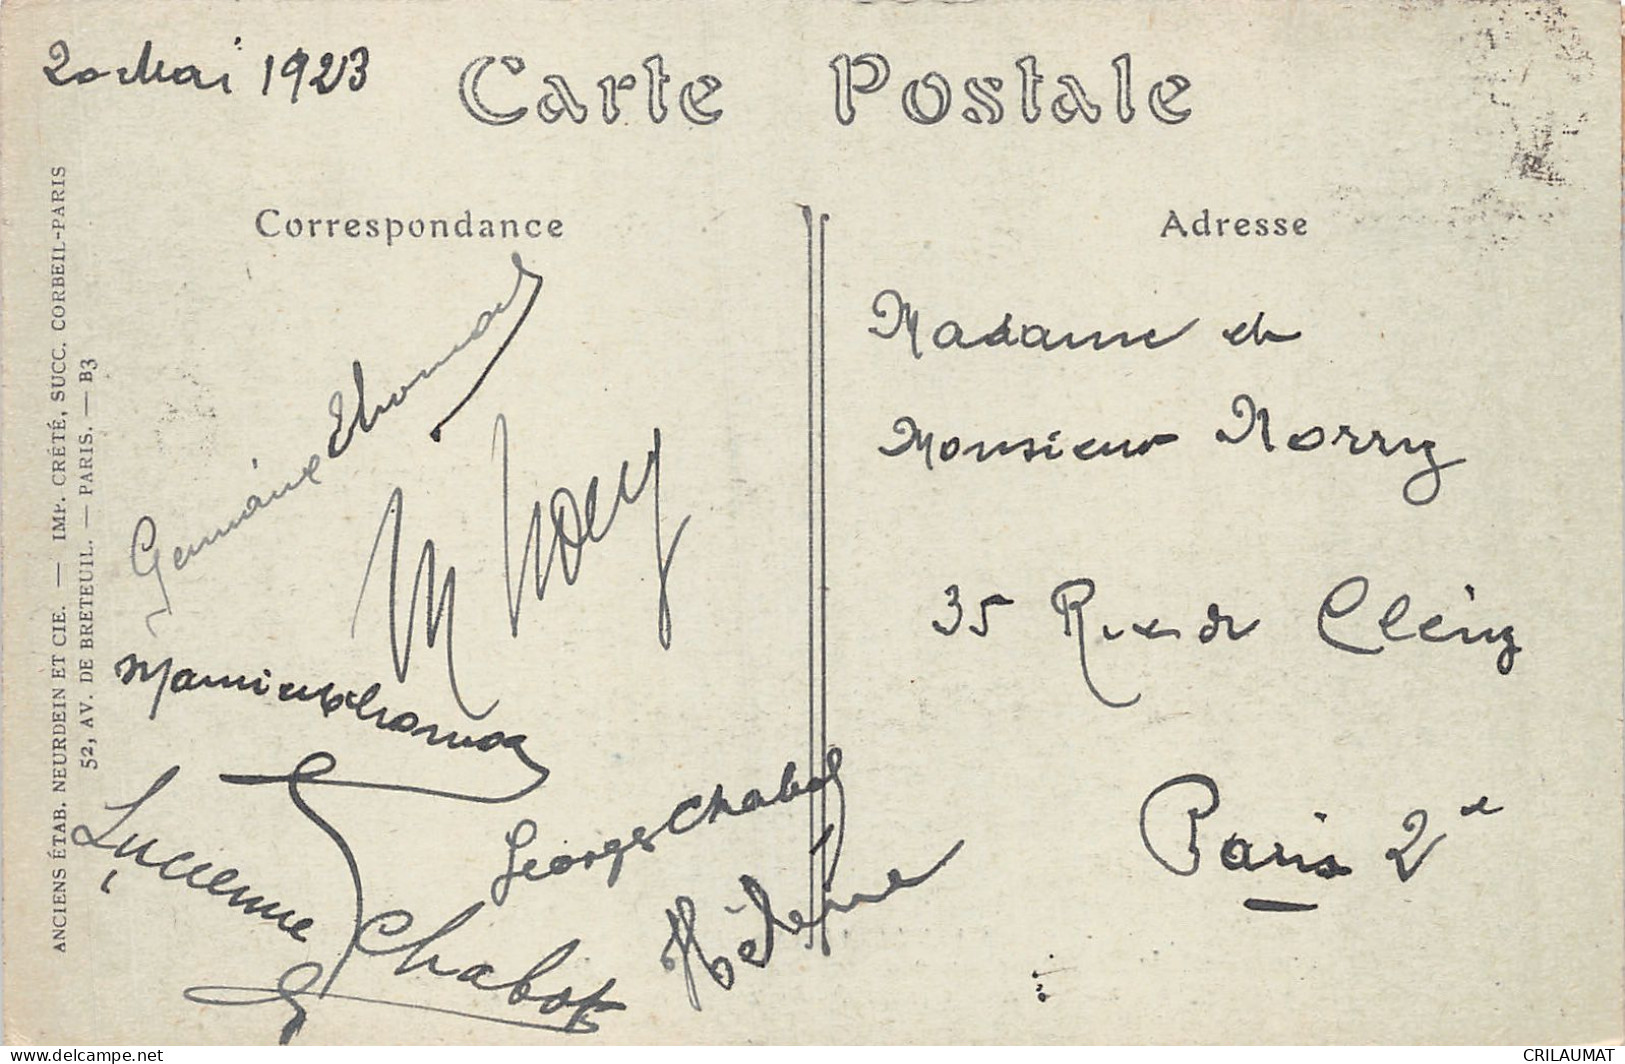 20 Mai 1923
Carte Postale
Correspondance
Adresse
ANCIENS ÉTAB. NEURDEIN ET CIE. — IMP. CRÉTÉ, SUCC. CORBEIL-PARIS
52, AV. DE BRETEUIL. — PARIS. — B3
Germaine Thomas
Georges Chabot
Lucienne Chabot
Hélène
Madame et
Monsieur Norry
35 Rue de Cléry
Paris 2e
CRILAUMAT
delcampe.net